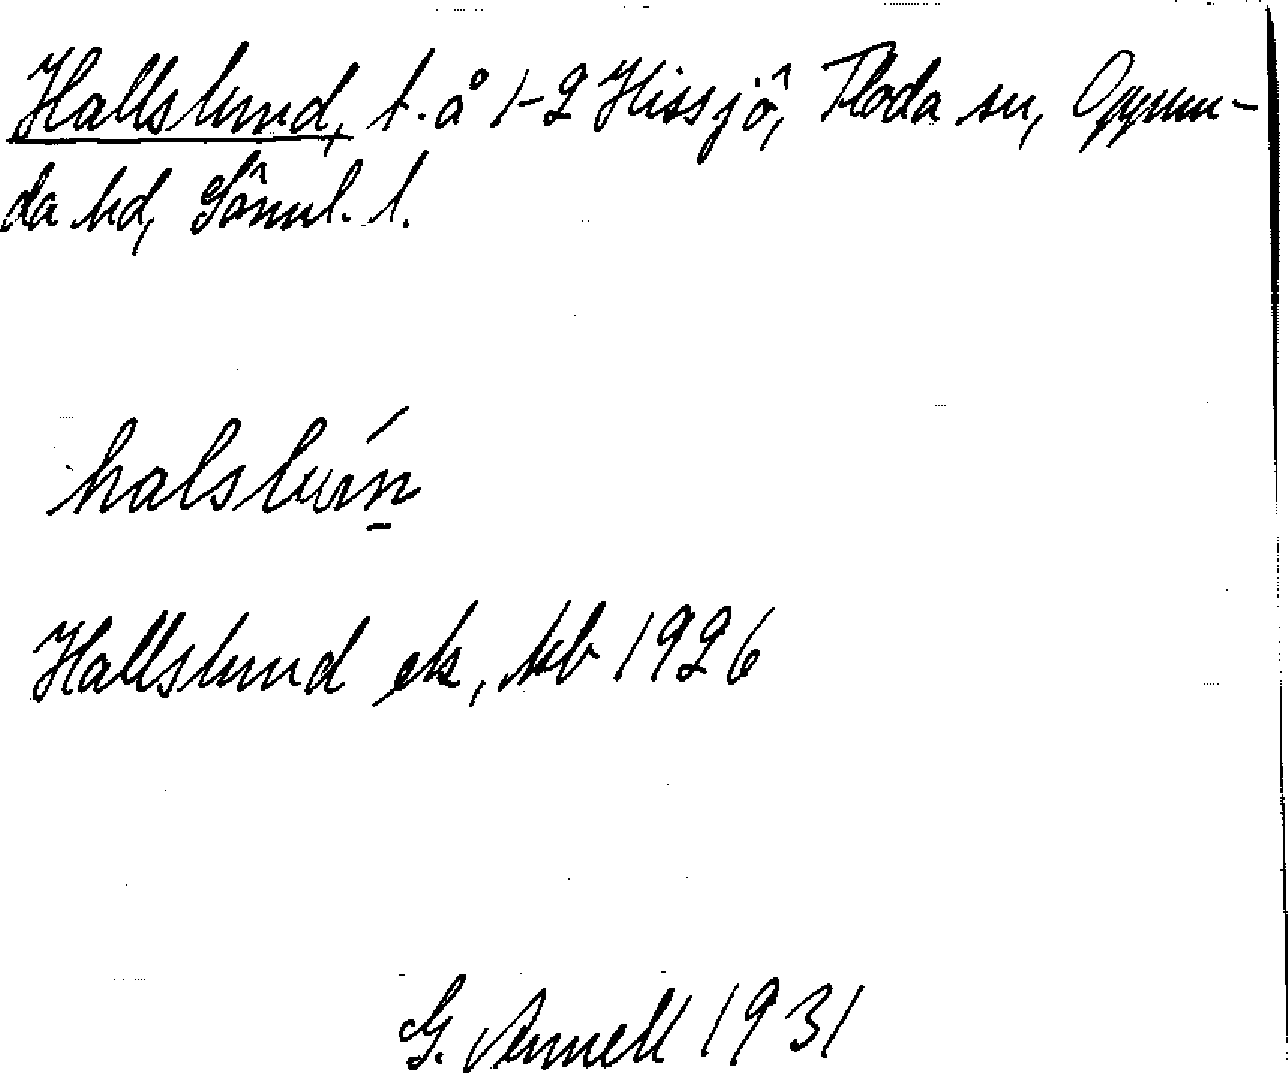 Hallslund, t. å 1-2 Hissjö, Floda sn, Oppun-
da hd, Sörml. l.
halsluń̠
Hallslund ek, kb 1926
G. Annell 1931